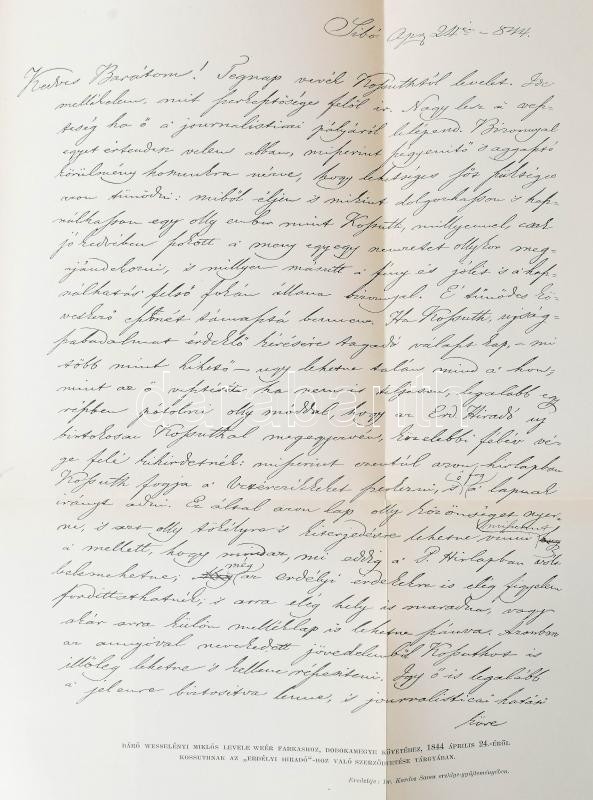 Sibó Apr 24én – 844.
Kedves Barátom! Tegnap vevék Kossuthtól levelet. Ide
mellékelem, mit szerkesztősége felől ír. Nagy lesz a vesz-
teség ha ő a journalisticai pályáról lelépend. Bizonyal
egyet értendesz velem abban, miszerint szegyenítő s aggasztó
körülmény honunkra nézve, hogy lehetséges sőt szükséges
azon tünődni: miből éljen is miként dolgozhasson is hasz-
nálhasson egy olly ember mint Kossuth, millyennel csak
jó kedviben szokott a meny egy egy nemzetet ollykor meg-
ajándékozni, is millyen másutt a fény és jólét is a hasz-
nálhatás felső fokán állana bizonyal. E tünődés kö-
vetkező eszmét támasztá bennem. Ha Kossuth, ujság-
szabadalmat érdeklő kérésére tagadó választ kap, – mi
több mint hihető – ugy lehetne talán mind a hon,
mint az ő veszteségét ha nem is teljesen, legalább eg
részben pótolni olly móddal, hogy az Erd Hiradó uj
birtokosai Kossuthal megegyezvén, közelebbi félév vé-
ge felé kihirdetnék: miszerint ezentúl azon hirlapban
Kossuth fogja a Vezérczikkeket szerkezni, is ő a lapnak
irányt adni. Ez által azon lap olly közönséget nyer-
ne, is azt olly tökélyre is kiterjedésre lehetne vinni miszerint
a mellett, hogy mindaz, mi eddig a P. Hirlapban volt
belemehetne; még az erdélyi érdekekre is elég figyelem
fordíttathatnék, is arra elég hely is maradna, vagy
akár arra külön melléklap is lehetne szánva. Azonban
az annyival nevekedett jövedelemből Kossuthot is
illőleg lehetne is kellene részesíteni. Igy ő is legalább
a jelenre biztosítva lenne, is journalisticai hatási
köre
darabanth
BÁRÓ WESSELÉNYI MIKLÓS LEVELE WEÉR FARKASHOZ, DOBOKAMEGYE KÖVETÉHEZ, 1844 ÁPRILIS 24.-ÉRŐL
KOSSUTHNAK AZ „ERDÉLYI HIRADÓ"-HOZ VALÓ SZERZŐDTETÉSE TÁRGYÁBAN.
Eredetije: Dr. Kardos Samu ereklye-gyűjteményében.